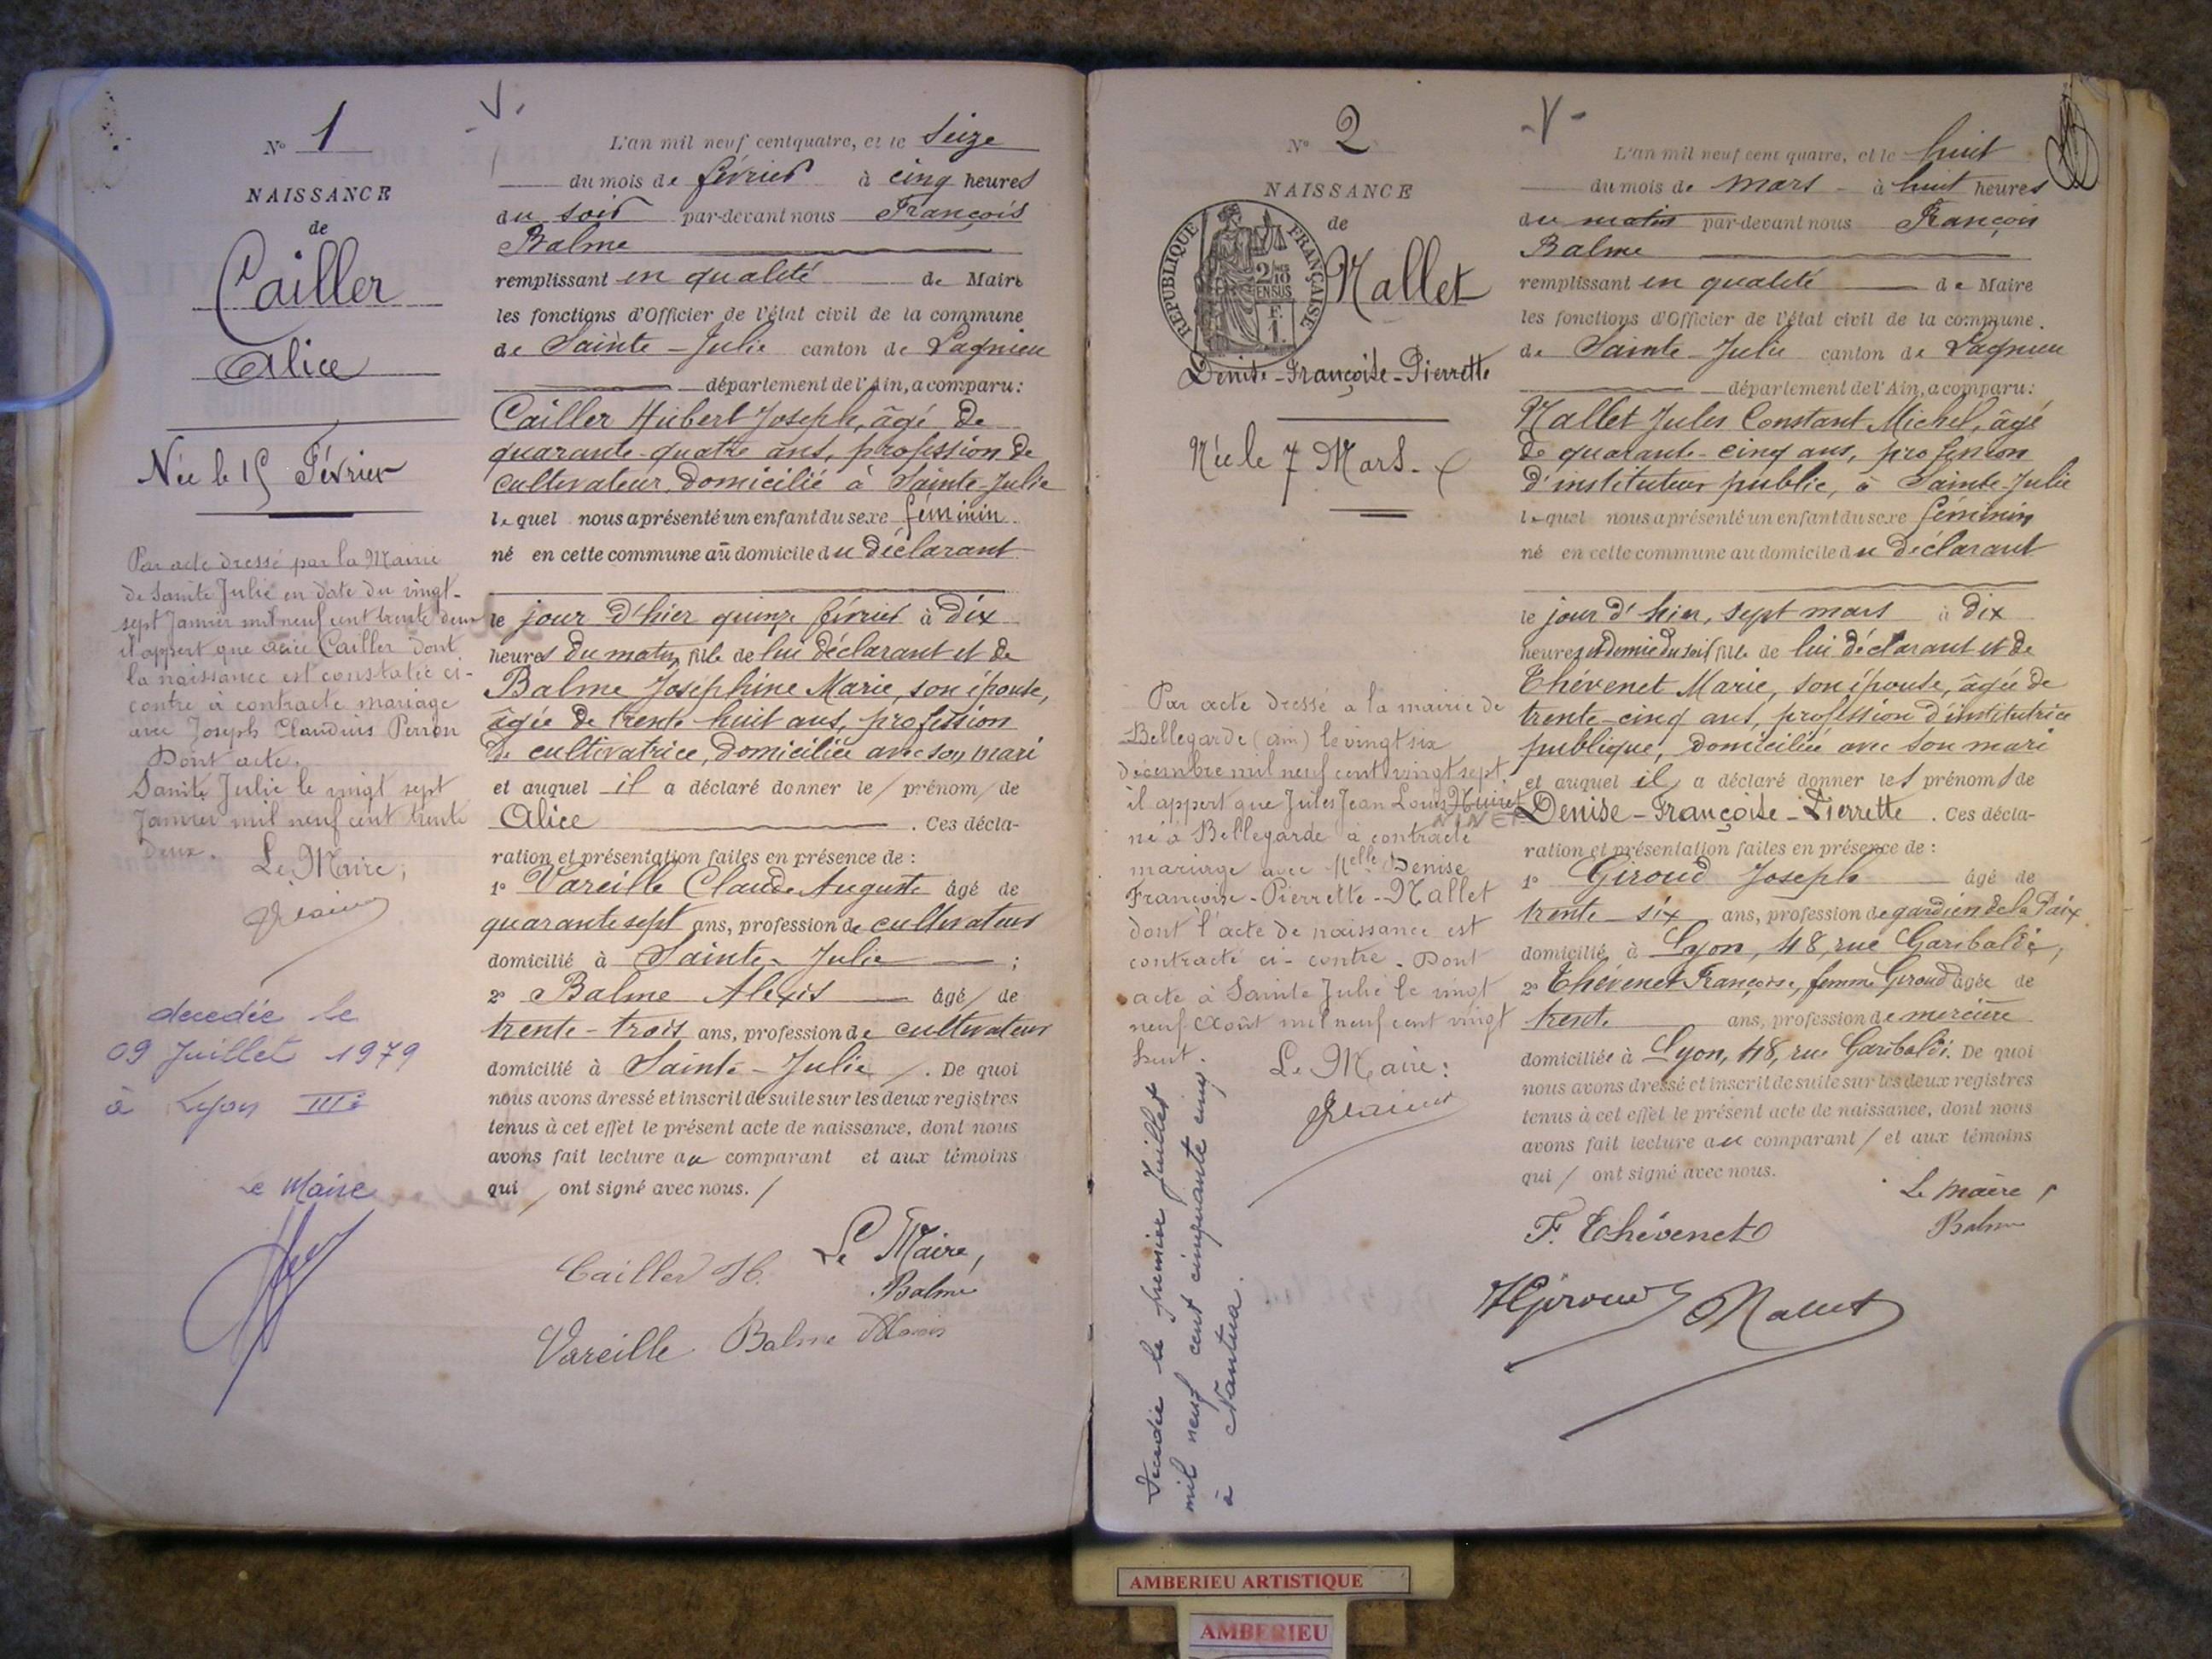 N° 1
NAISSANCE
de
Cailler
Alice
Née le 15 Février
Par acte dressé par la Mairie
de Sainte Julie en date du vingt-
sept Janvier mil neuf cent trente deux
il appert que Alice Cailler dont
la naissance est constatée ci-
contre à contracté mariage
avec Joseph Claudius Perron
Dont acte.
Sainte Julie le vingt sept
Janvier mil neuf cent trente
deux.
Le Maire,
decedée le
09 Juillet 1979
à Lyon IIIe
Le Maire
L'an mil neuf cent quatre, et le Seize
du mois de février à cinq heures
du soir par-devant nous François
Balme
remplissant en qualité de Maire
les fonctions d'Officier de l'état civil de la commune
de Sainte-Julie canton de Lagnieu
département de l'Ain, a comparu:
Cailler Hubert Joseph, âgé de
quarante-quatre ans, profession de
cultivateur, domicilié à Sainte-Julie
lequel nous a présenté un enfant du sexe féminin
né en cette commune au domicile du déclarant
le jour d'hier quinze février à dix
heures du matin, fille de lui déclarant et de
Balme Joséphine Marie, son épouse,
âgée de trente huit ans, profession
de cultivatrice, domiciliée avec son mari
et auquel il a déclaré donner le prénom de
Alice . Ces décla-
ration et présentation faites en présence de :
1° Vareille Claude Auguste âgé de
quarante sept ans, profession de cultivateur
domicilié à Sainte-Julie ;
2° Balme Alexis âgé de
trente-trois ans, profession de cultivateur
domicilié à Sainte-Julie . De quoi
nous avons dressé et inscrit de suite sur les deux registres
tenus à cet effet le présent acte de naissance, dont nous
avons fait lecture au comparant et aux témoins
qui ont signé avec nous.
Cailler H. Le Maire,
Balme
Vareille Balme Alexis
N° 2
NAISSANCE
de
REPUBLIQUE FRANÇAISE
2/10 EN SUS
F. 1.
Mallet
Denise-Françoise-Pierrette
Née le 7 Mars.
Par acte dressé a la mairie de
Bellegarde (ain) le vingt six
décembre mil neuf cent vingt sept,
il appert que Jules Jean Louis
né à Bellegarde à contracté
mariage avec Melle Denise
Françoise-Pierrette-Mallet
dont l'acte de naissance est
contracté ci-contre. Dont
acte à Sainte Julie le vingt
neuf Août mil neuf cent vingt
huit.
Le Maire:
Décédée le premier Juillet
mil neuf cent cinquante cinq
à Nantua.
L'an mil neuf cent quatre, et le huit
du mois de mars à huit heures
du matin par-devant nous François
Balme
remplissant en qualité de Maire
les fonctions d'Officier de l'état civil de la commune.
de Sainte-Julie canton de Lagnieu
département de l'Ain, a comparu:
Mallet Jules Constant Michel, âgé
de quarante-cinq ans, profession
d'instituteur public, à Sainte-Julie
lequel nous a présenté un enfant du sexe féminin
né en cette commune au domicile du déclarant
le jour d'hier, sept mars à dix
heures et demie du soir fille de lui déclarant et de
Thévenet Marie, son épouse, âgée de
trente-cinq ans, profession d'institutrice
publique, domiciliée avec son mari
et auquel il a déclaré donner les prénoms de
Denise-Françoise-Pierrette . Ces décla-
ration et présentation faites en présence de :
1° Giroud Joseph âgé de
trente-six ans, profession de gardien de la Paix
domicilié à Lyon, 48, rue Garibaldi,
2° Thévenet Françoise, femme Giroud âgée de
trente ans, profession de mercière
domiciliée à Lyon, 48, rue Garibaldi. De quoi
nous avons dressé et inscrit de suite sur les deux registres
tenus à cet effet le présent acte de naissance, dont nous
avons fait lecture au comparant et aux témoins
qui ont signé avec nous.
Le Maire,
F. Thévenet Balme
Giroud Mallet
AMBERIEU ARTISTIQUE
AMBERIEU